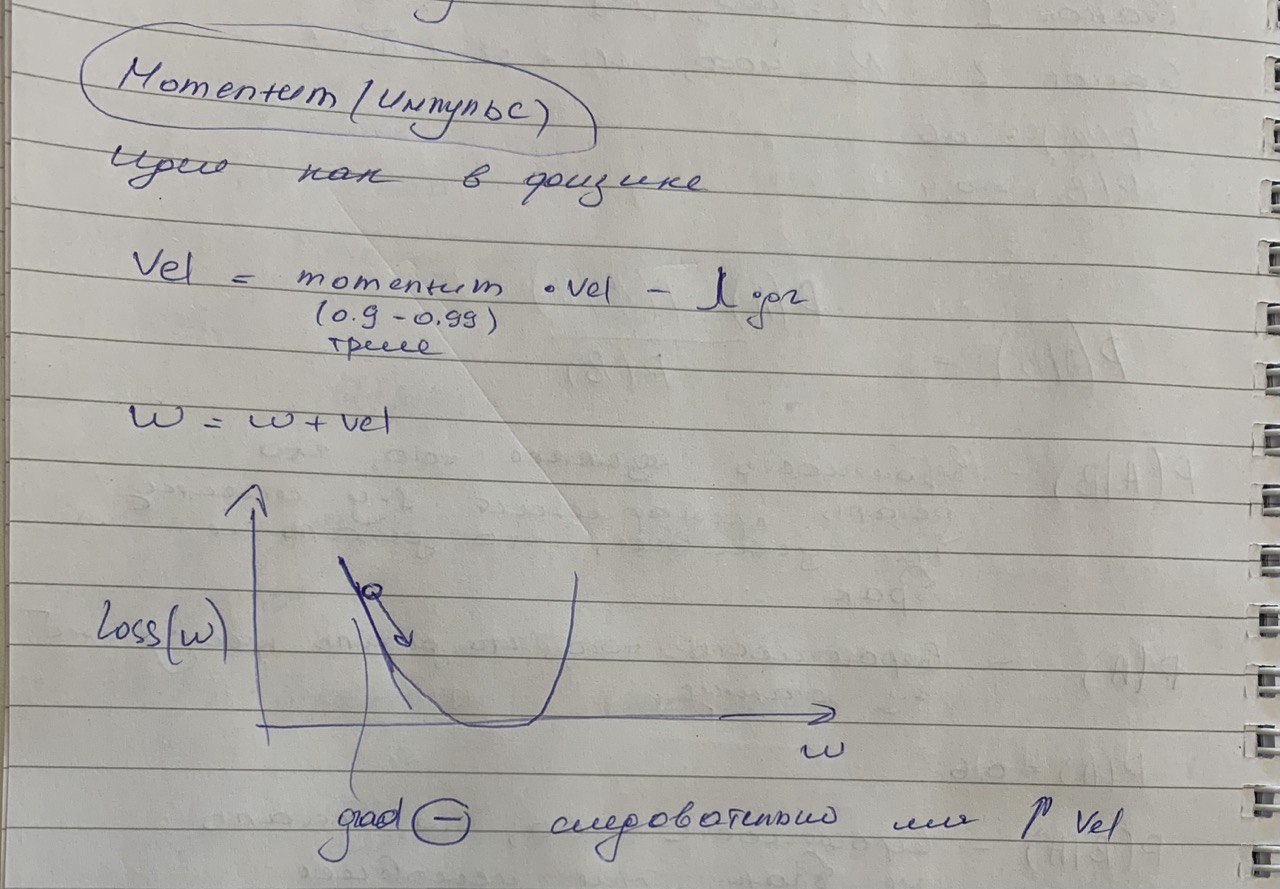 Momentum (импульс)
идея как в физике
Vel = momentum • vel - l • gr
(0.9 - 0.99)
трение
w = w + vel
Loss(w)
w
grad ⊖ следовательно мы ↑ Vel